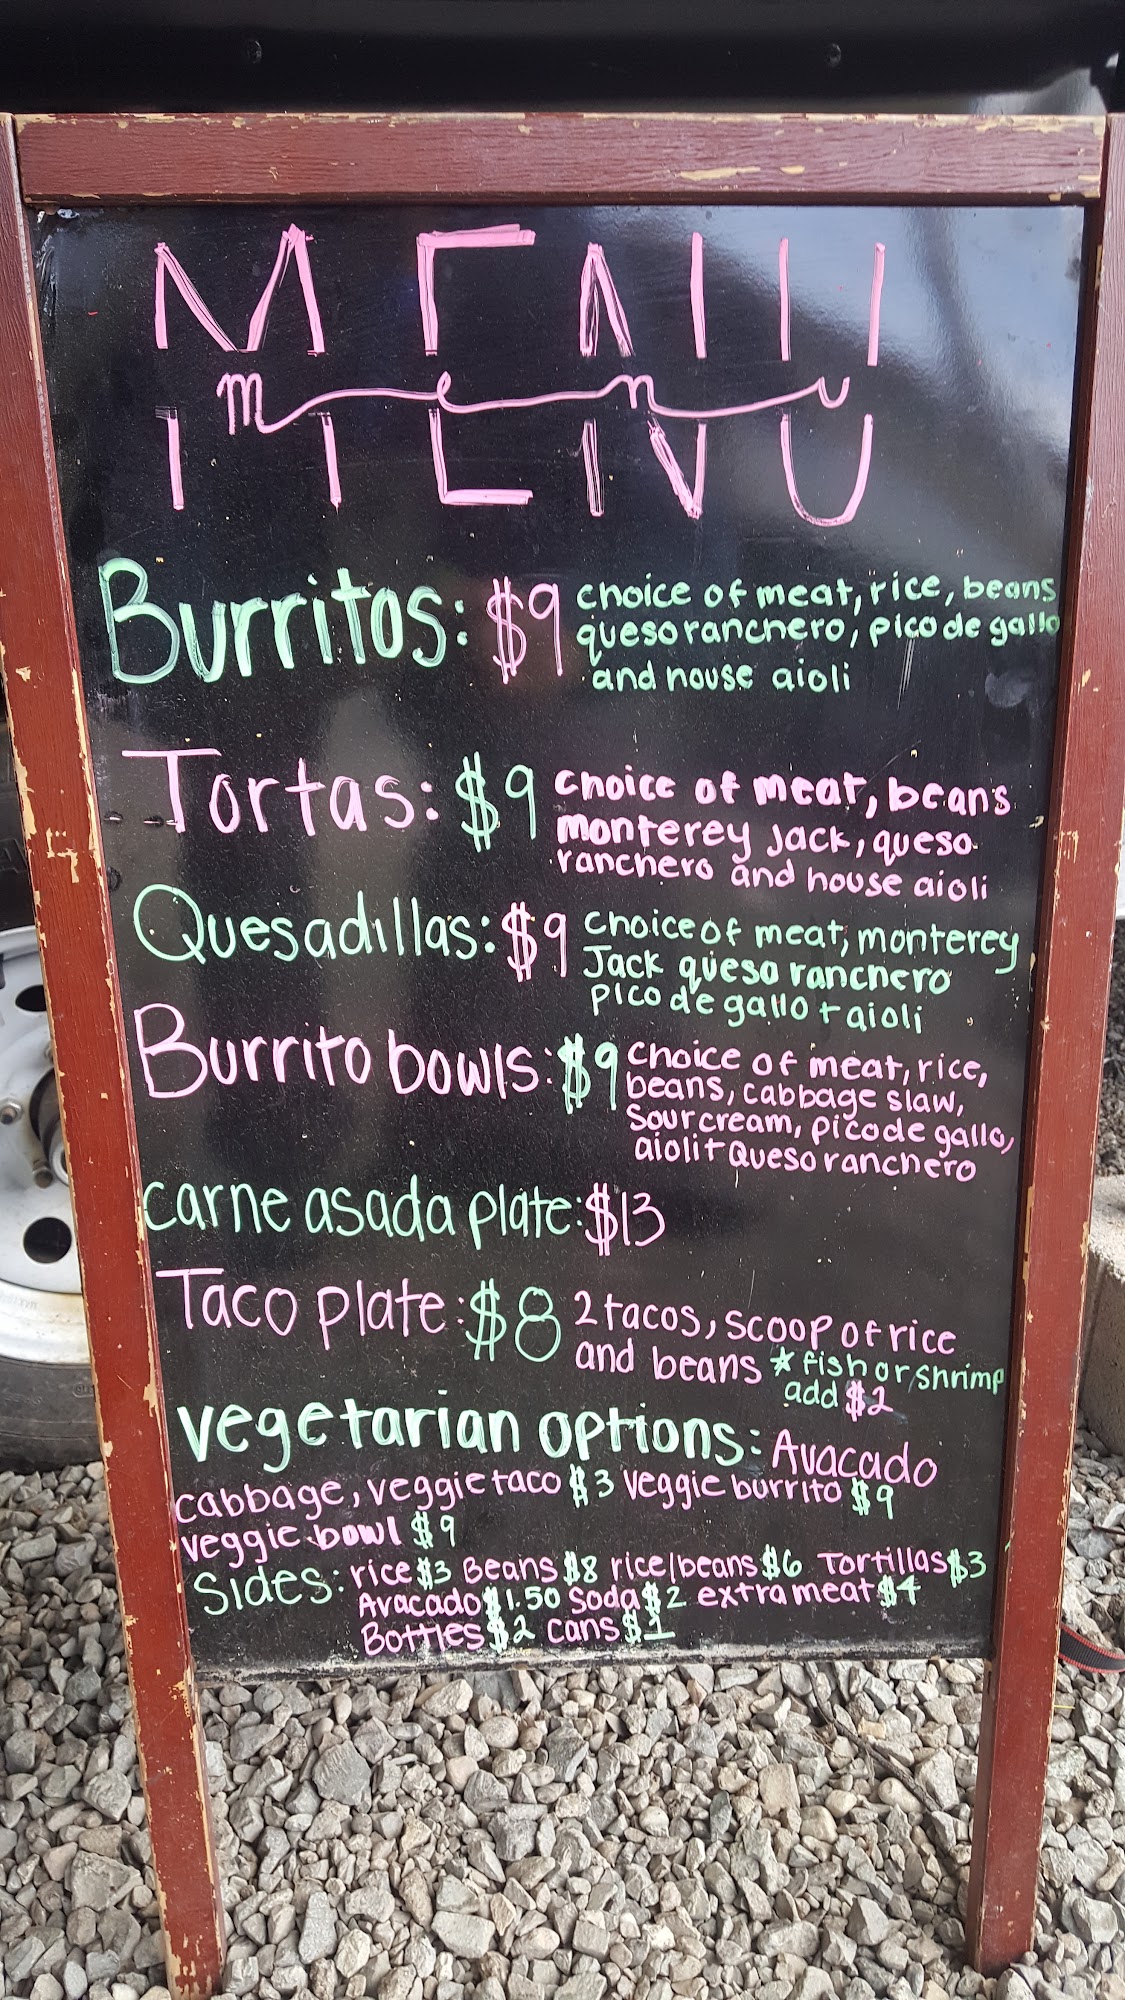 MENU
menu
Burritos: $9 choice of meat, rice, beans
queso ranchero, pico de gallo
and house aioli
Tortas: $9 choice of meat, beans
monterey Jack, queso
ranchero and house aioli
Quesadillas: $9 choice of meat, monterey
Jack queso ranchero
pico de gallo + aioli
Burrito bowls: $9 choice of meat, rice,
beans, cabbage slaw,
sour cream, pico de gallo,
aioli + Queso ranchero
carne asada plate: $13
Taco plate: $8 2 tacos, scoop of rice
and beans * fish or shrimp
add $2
vegetarian options: Avacado
cabbage, veggie taco $3 veggie burrito $9
veggie bowl $9
Sides: rice $3 Beans $8 rice/beans $6 Tortillas $3
Avacado $1.50 Soda $2 extra meat $4
Bottles $2 cans $1